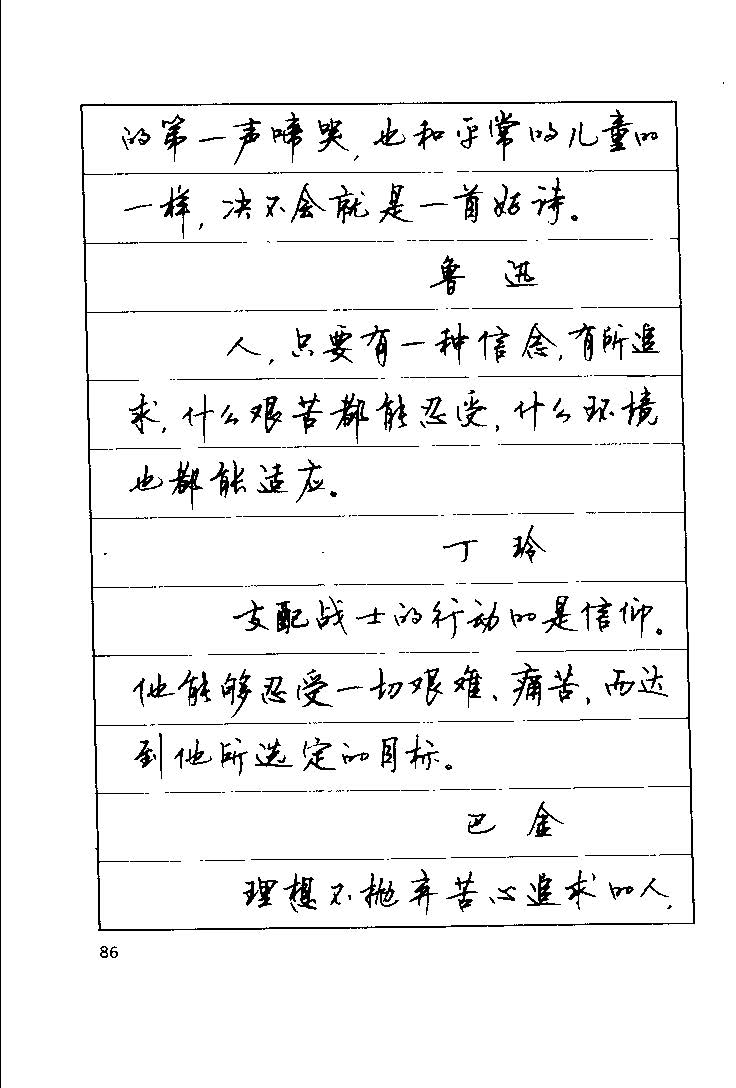 的第一声啼哭，也和平常的儿童的
一样，决不会就是一首好诗。
鲁 迅
人，只要有一种信念，有所追
求，什么艰苦都能忍受，什么环境
也都能适应。
丁 玲
支配战士的行动的是信仰。
他能够忍受一切艰难、痛苦，而达
到他所选定的目标。
巴 金
理想不抛弃苦心追求的人，
86